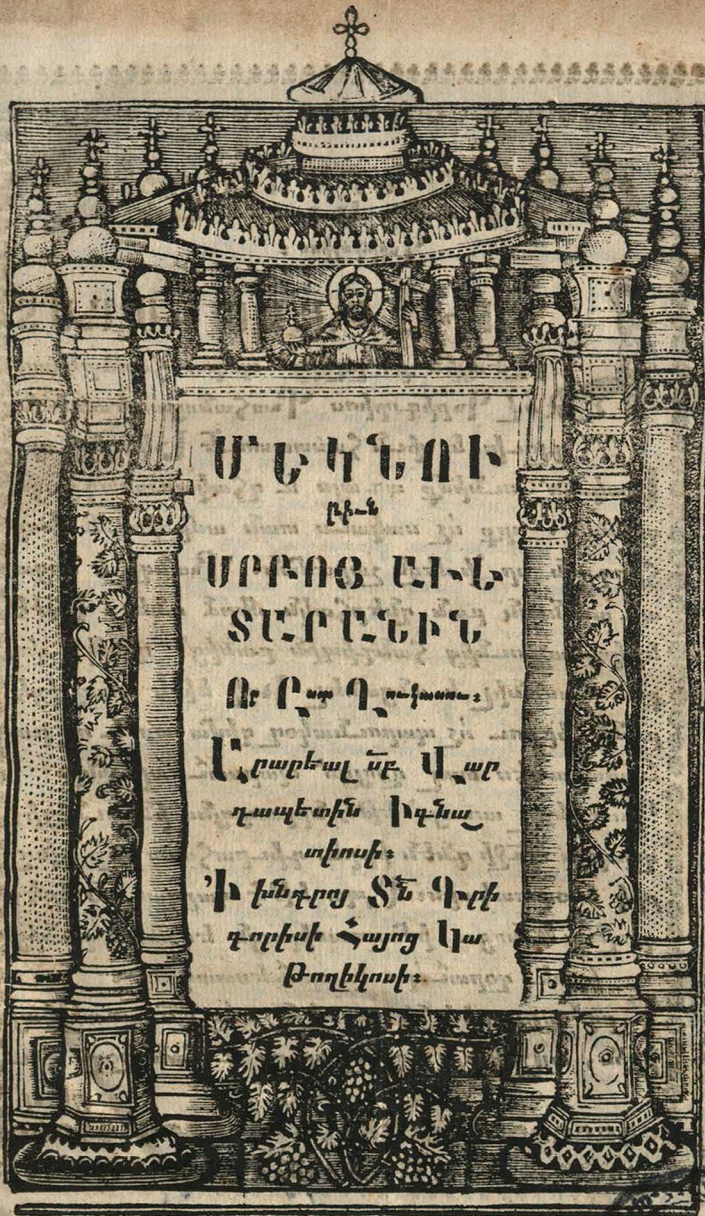 ՄԵԿՆՈՒ
թի՛ն
ՍՐԲՈՑ ԱՒԵ
ՏԱՐԱՆԻՆ
Որ Ըստ Ղուկասու։
Արարեալ սբ Վար
դապետին Իգնա
տիոսի։
Ի խնդրոյ Տն Գրի
գորիսի Հայոց Կա
թողիկոսի։